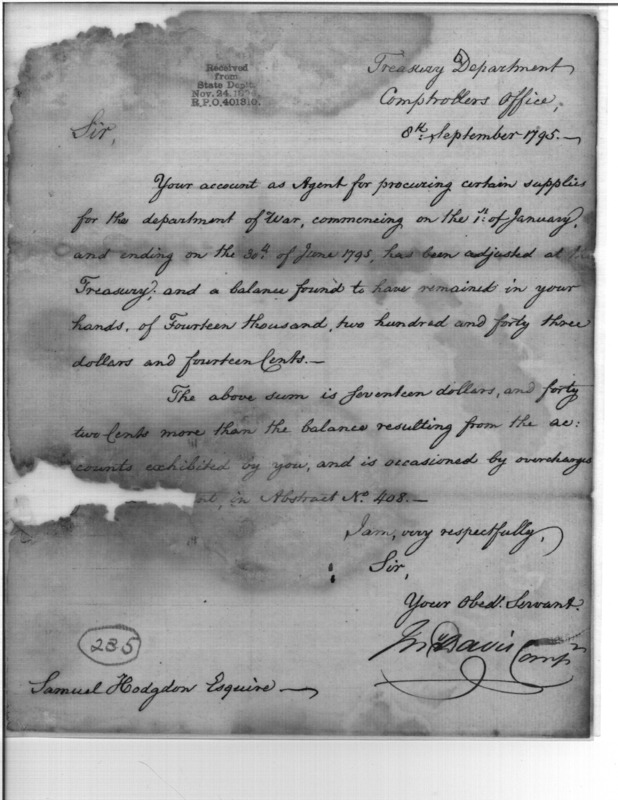 Received
from
State Dept.
Nov. 24,
R.P.O. 401310.
Treasury Department
Comptrollers Office,
8th. September 1795.—
Sir,
Your account as Agent for procuring certain supplies
for the department of War, commencing on the 1st. of January,
and ending on the 30th. of June 1795, has been adjusted at the
Treasury, and a balance found to have remained in your
hands, of Fourteen thousand, two hundred and forty three
dollars and fourteen Cents.—
The above sum is seventeen dollars, and forty
two Cents more than the balance resulting from the ac:
counts exhibited by you, and is occasioned by overcharges
in Abstract No. 408.—
I am, very respectfully,
Sir,
Your Obedt. Servant.
Jno Davis Compr
235
Samuel Hodgdon Esquire—